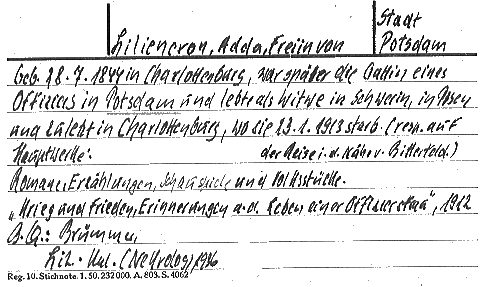 Stadt
Liliencron, Adda, Freiin von Potsdam
Geb. 28.7.1844 in Charlottenburg, war später die Gattin eines
Offiziers in Potsdam und lebt als Witwe in Schwerin, in Posen
und zuletzt in Charlottenburg, wo sie 23.1.1913 starb. (resp. auf
Hauptwerke: der Reise i. d. Nähe v. Bitterfeld.)
Romane, Erzählungen, Schauspiele und Volksstücke.
"Krieg und Frieden, Erinnerungen a. d. Leben einer Offiziersfrau", 1912
B.Q.: Brümmer,
Lit. (Nekrolog) 1936
Reg. 10. Stichnote. 1. 50. 232000. A. 803. S. 4062